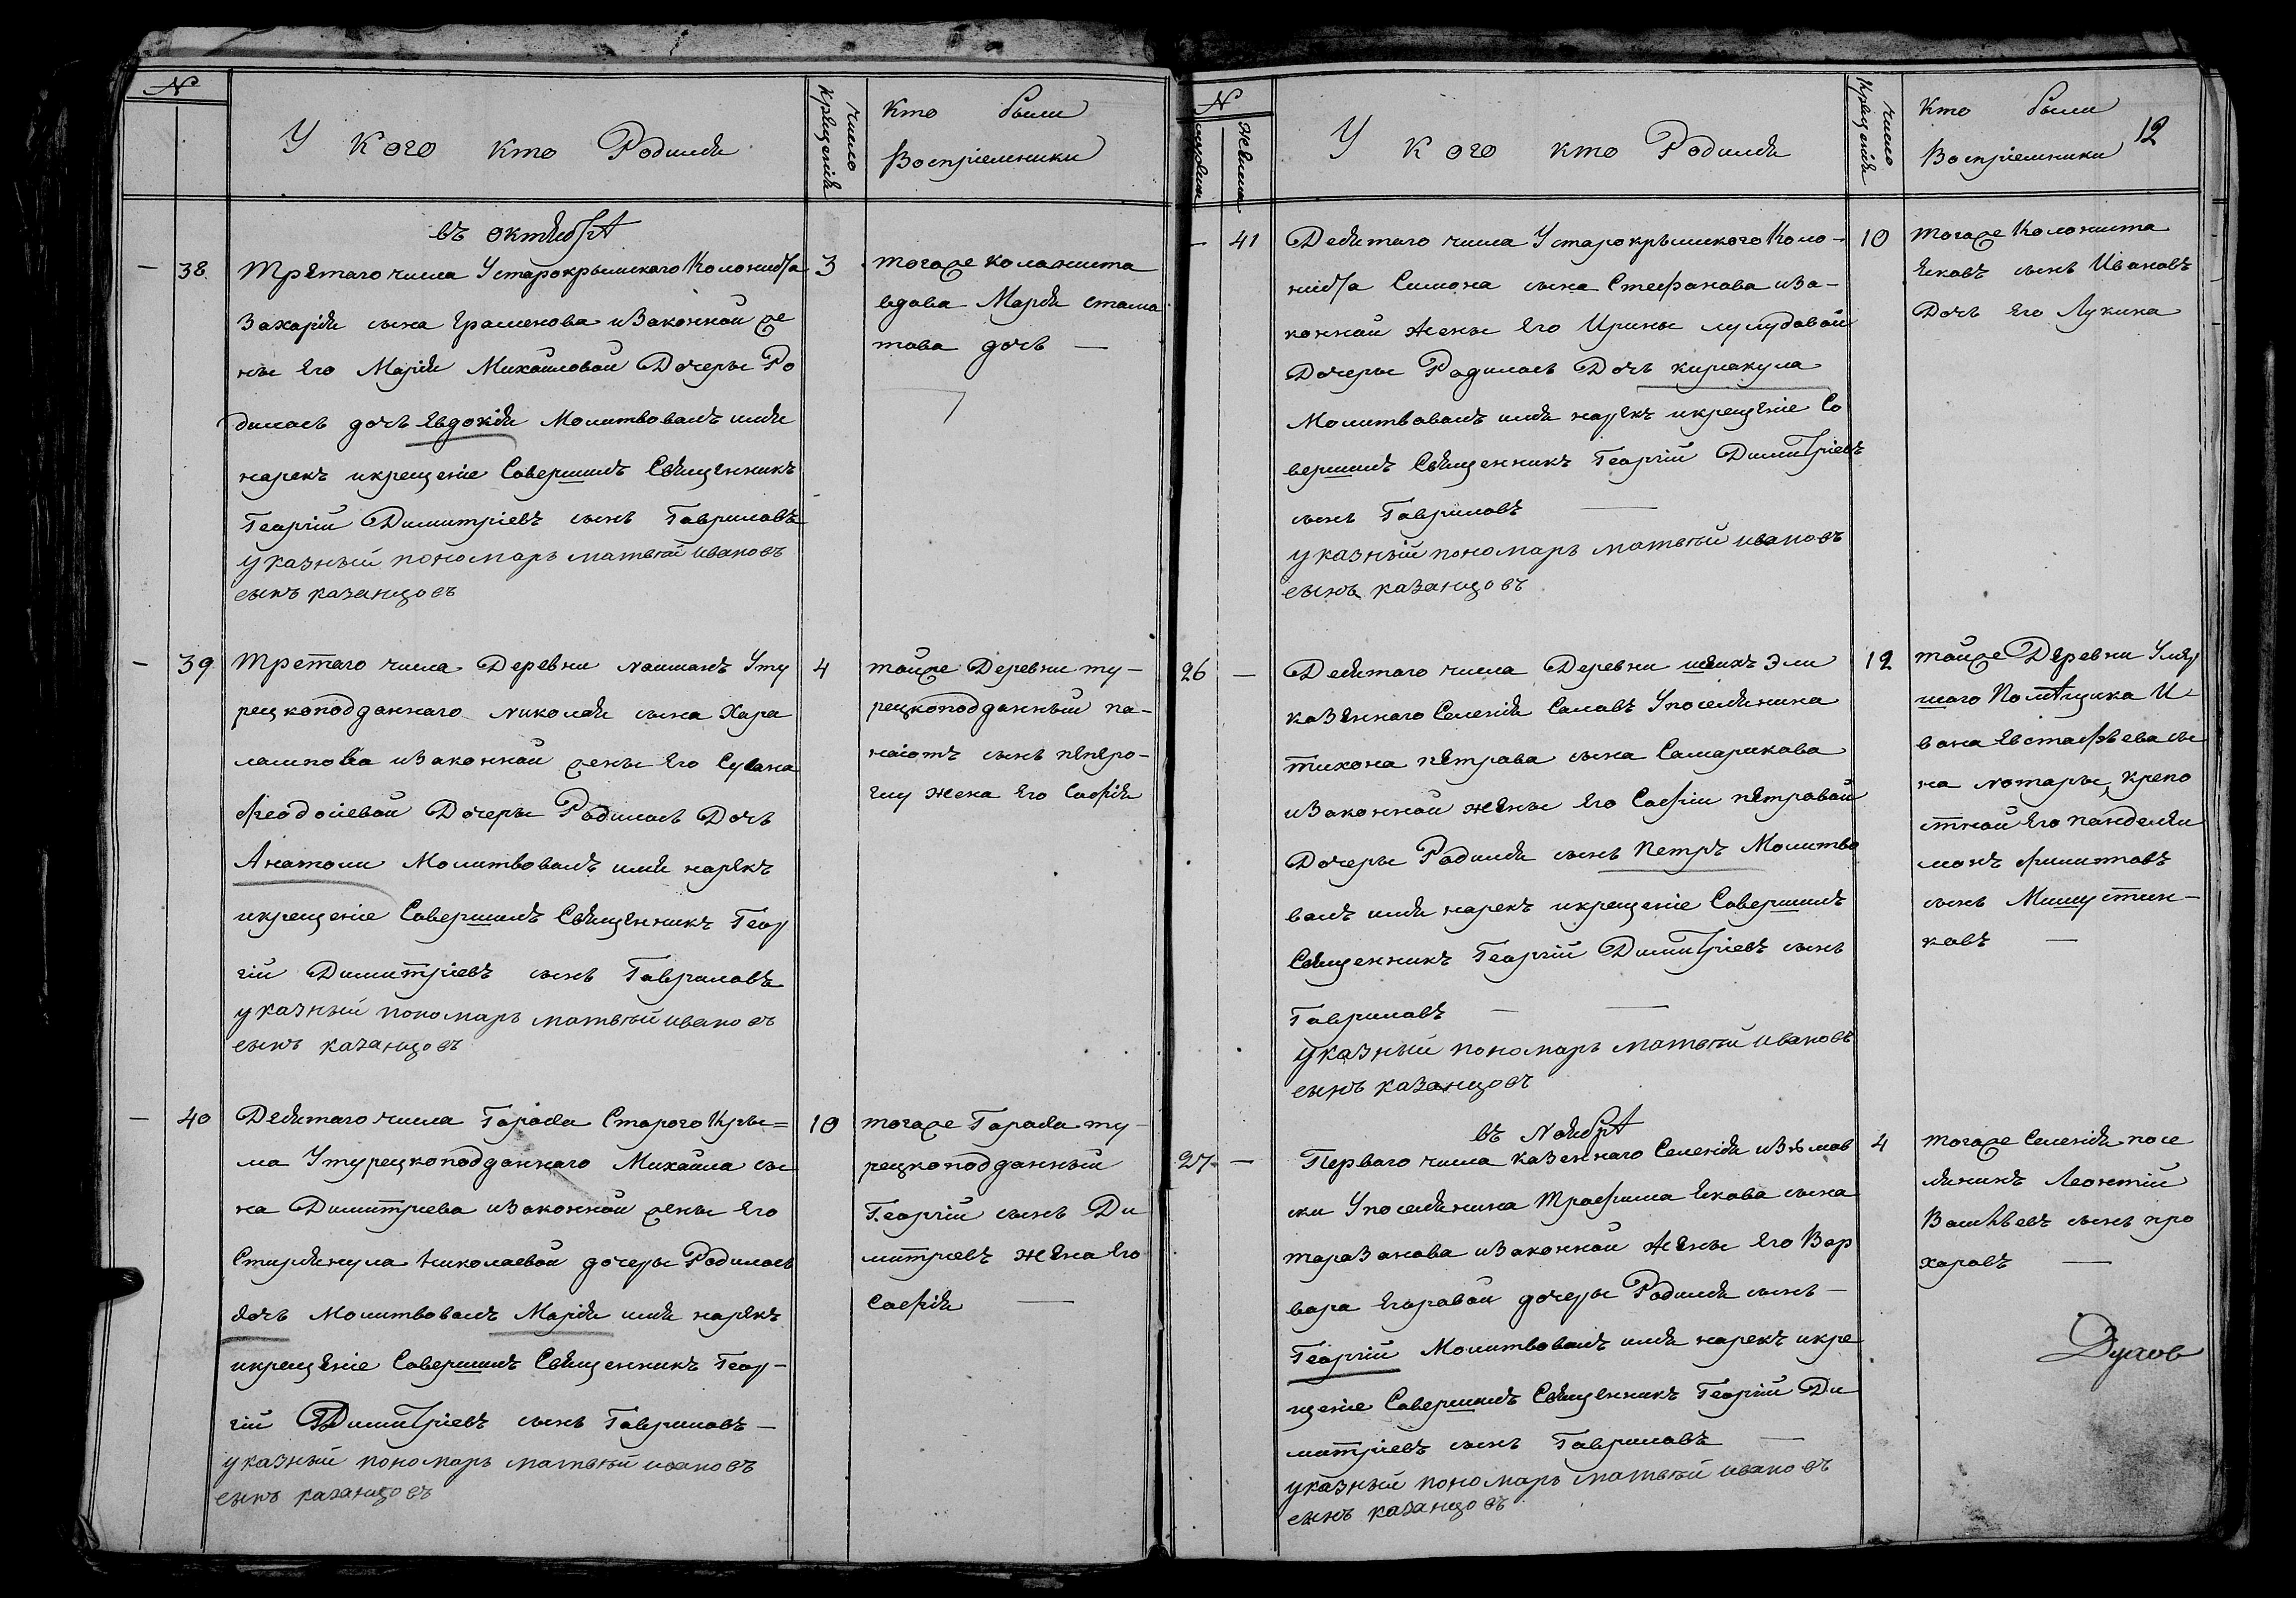 N
У кого кто Родился
число крещенія
кто были
Воспріемники
въ октябрѣ
— 38.
Третяго числа Устарокрымскаго Колониста
Захарія сына Граменова изаконной же
ны Его Маріи Михайловой Дочеры Ро
дилась дочъ Евдокія Молитвовалъ имя
нарекъ икрещеніе Совершилъ Священникъ
Георгій Димитріевъ сынъ Гавриловъ
указный пономарь матвѣй ивановъ
сынъ казанцовъ
3
тогоже колониста
вдова Марія стама
това дочъ —
— 39
Третяго числа Деревни Найманъ Уту
рецкоподданнаго Николая сына Хара
лампова изаконной жены Его Сувана
феодосіевой Дочеры Родилась Дочъ
Анатоли Молитвовалъ имя нарекъ
икрещеніе Совершилъ Священникъ Геор
гій Димитріевъ сынъ Гавриловъ
указный пономарь матвѣй ивановъ
сынъ казанцовъ
4
тойже Деревни ту-
рецкоподданный па-
наіотъ сынъ пеперо-
глу жена Его Софія
— 40
Девятаго числа Города Старого Кры=
ма Утурецкоподданнаго Михаила сы
на Димитриева изаконной жены Его
Стиряжула Николаевой дочеры Родилась
дочъ Молитвовалъ Марія имя нарекъ
икрещеніе Совершилъ Священникъ Геор-
гій Димитріевъ сынъ Гавриловъ —
указный пономарь матвѣй ивановъ
сынъ казанцовъ
10
тогоже Города ту-
рецкоподданный
Георгій сынъ Ди
митріевъ жена Его
Софія —
N
мужска
женска
У кого кто Родился
число крещенія
кто были
Воспріемники
12
— 41
Девятаго числа Устарокрымского Коло-
ниста Симона сына Стефанова иза-
конной жены Его Ирины лулудовой
Дочеры Родилась Дочъ киракула
Молитвовалъ имя нарекъ икрещеніе Со
вершилъ Священникъ Георгій Димитріевъ
сынъ Гавриловъ —
указный пономарь матвѣй ивановъ
сынъ казанцовъ
10
тогоже Колониста
Яковъ сынъ Ивановъ
Дочъ Его Лукина
26 —
Девятаго числа Деревни шейхъ Эли
казеннаго Селенія Саловъ Упоселянина
тихона петрова сына Самарикова
изаконной жены Его Софіи петровой
Дочеры Родился сынъ Петръ Молитво
валъ имя нарекъ икрещеніе Совершилъ
Священникъ Георгій Димитріевъ сынъ
Гавриловъ —
указный пономарь матвѣй ивановъ
сынъ казанцовъ
12
тойже Деревни Умер
шаго Помѣщика И-
вана Евстафьева сы
на Нотары, крепо
стной Его панделеи
монъ филиповъ
сынъ Мишустин-
ковъ —
въ Ноябрѣ
27 —
Перваго числа казеннаго Селенія изюмов
ски Упоселянина Трофима Якова сына
таразанова изаконной жены Его Вар
вара Егоровой дочеры Родился сынъ —
Георгій Молитвовалъ имя нарекъ икре
щеніе Совершилъ Священникъ Георгій Ди
митріевъ сынъ Гавриловъ —
указный пономарь матвѣй ивановъ
сынъ казанцовъ
4
тогоже Селенія посе
лянинъ Леонтій
Васильевъ сынъ про
хоровъ —
Духов